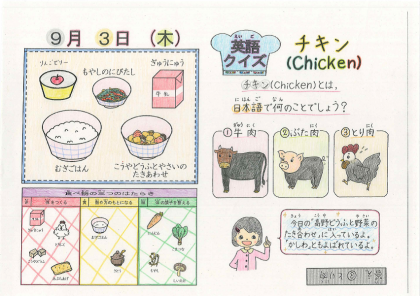 9月 3日 (木)
りんごゼリー
もやしのにびたし
ぎゅうにゅう
牛乳
むぎごはん
こうやどうふとやさいの
たきあわせ
食べ物の三つのはたらき
英語
クイズ
チキン
(Chicken)
チキン(Chicken)とは、
日本語で何のことでしょう?
①牛肉
②ぶた肉
③とり肉
今日の“高野どうふと野菜の
たき合わせ”に入っているよ。
かしわともよばれているよ。